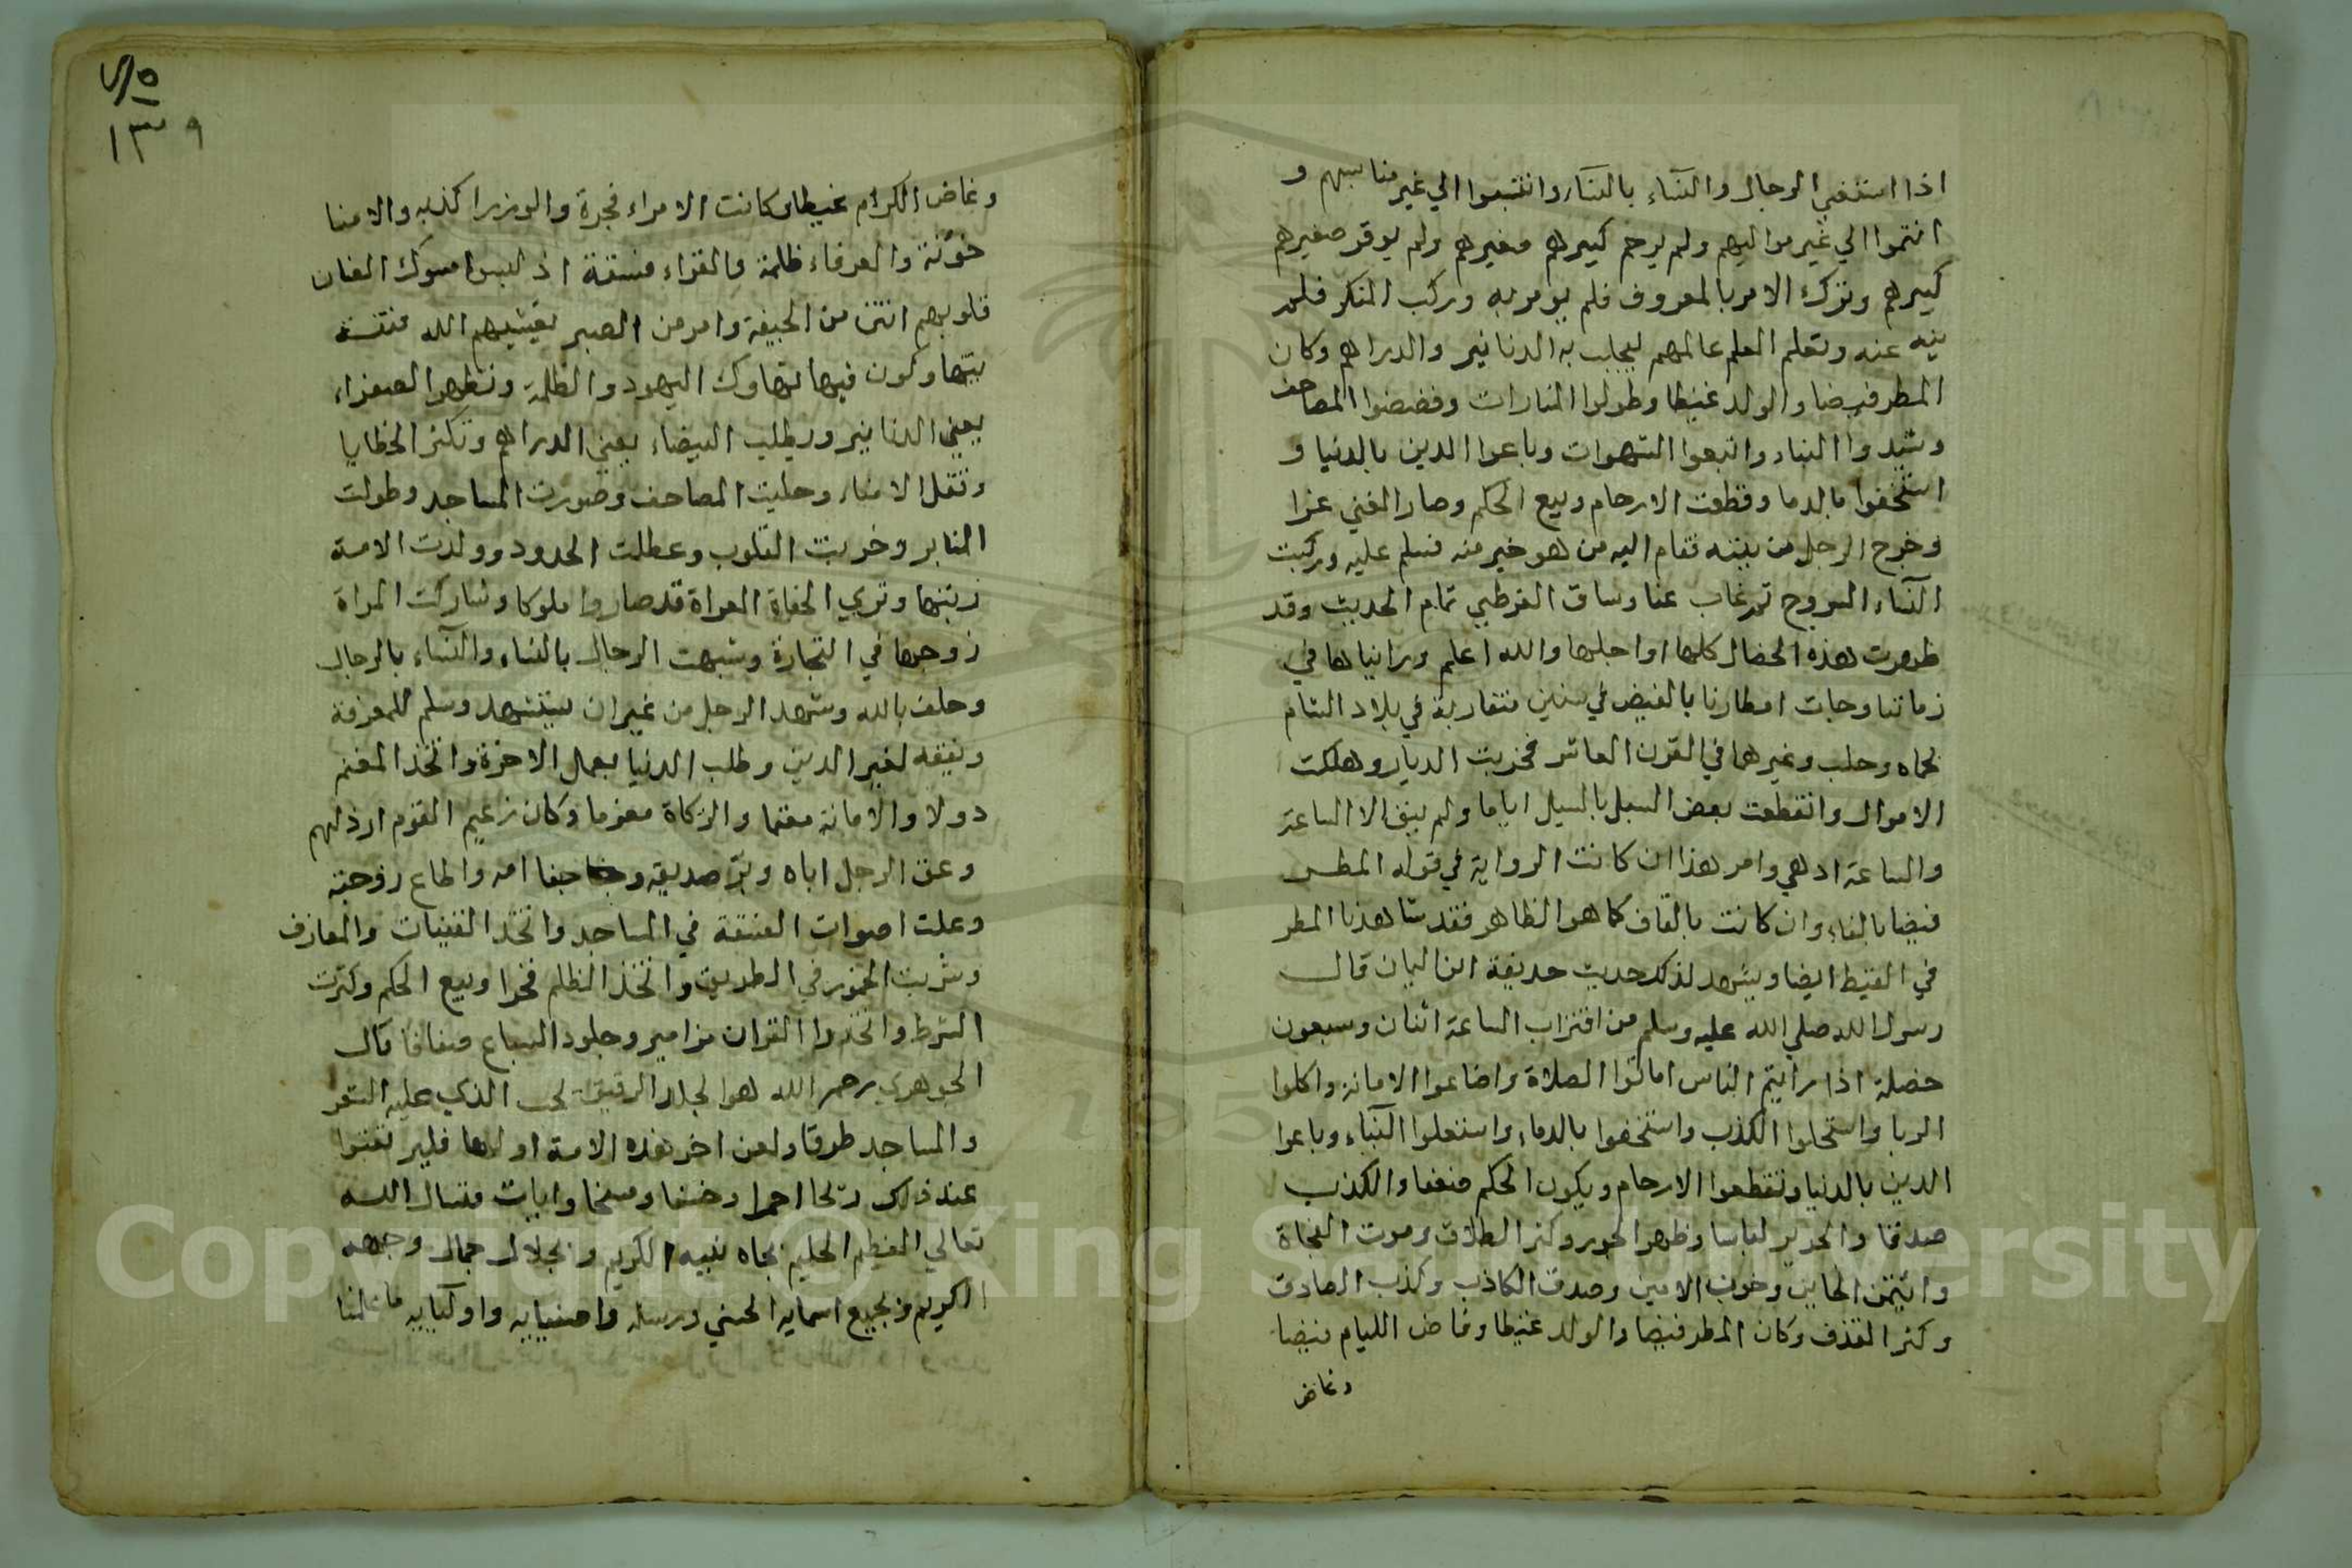 اذا استغني الرجال بالرجال والنساء بالنساء وانتسبوا الي غير مناسبهم و
انتموا الي غير مواليهم ولم يرحم كبيرهم صغيرهم ولم يوقر صغيرهم
كبيرهم وترك الامر بالمعروف فلم يومر به وركب المنكر فلم
ينه عنه وتعلم العلم عالمهم ليجلب به الدنانير والدراهم وكان
المطر قيضا والولد غيظا وطولوا المنارات وفضضوا المصاحف
وشيدوا البناء واتبعوا الشهوات وباعوا الدين بالدنيا و
استخفوا بالدما وقطعت الارحام وبيع الحكم وصار الغني عزا
وخرج الرجل من بيته فقام اليه من هو خير منه فسلم عليه وركبت
النساء السروج ثم غاب عنا وساق القرطبي تمام الحديث وقد
ظهرت هذه الخصال كلها او اجلها والله اعلم وراينا ها في
زماننا وجات امطارنا بالفيض في سنين متقاربة في بلاد الشام
كحماه وحلب وغيرهما في القرن العاشر فخربت الديار وهلكت
الاموال وانقطعت بعض السبل بالسيل اياما ولم يبق الا الساعة
والساعة ادهي وامر هذا ان كانت الرواية في قوله المطر
فيضا بالفاء وان كانت بالقاف كما هو الظاهر فقد شاهدنا المطر
في القيظ ايضا ويشهد لذلك حديث حذيفة ابن اليمان قال
رسول الله صلي الله عليه وسلم من اقتراب الساعة اثنان وسبعون
خصلة اذا رايتم الناس اماتوا الصلاة واضاعوا الامانة واكلوا
الربا واستحلوا الكذب واستخفوا بالدماء واستعلوا البناء وباعوا
الدين بالدنيا وتقطعوا الارحام ويكون الحكم ضعفا والكذب
صدقا والحرير لباسا وظهر الجور وكثر الطلاق وموت الفجاة
وائتمن الخاين وخون الامين وصدق الكاذب وكذب الصادق
وكثر القذف وكان المطر قيضا والولد غيظا وفاض الليام فيضا
وغاض
٥
١٣٩
وغاض الكرام غيظا وكانت الامراء فجرة والوزرا كذبه والامنا
خونة والعرفاء ظلمة والقراء فسقة اذ لبسوا مسوك الضان
قلوبهم انتن من الجيفة وامر من الصبر يغشيهم الله فتنة
يتهاوكون فيها تهاوك اليهود والظلمة وتظهر الصفراء
يعني الدنانير ويطلب البيضاء يعني الدراهم وتكثر الخطايا
وتقل الامناء وحليت المصاحف وصورت المساجد وطولت
المنابر وخربت القلوب وعطلت الحدود وولدت الامة
ربتها وتري الحفاة العراة قد صاروا ملوكا وشاركت المراة
زوجها في التجارة وشبهت الرجال بالنساء والنساء بالرجال
وحلف بالله وشهد الرجل من غير ان يستشهد وسلم للمعرفة
وتفقه لغير الدين وطلب الدنيا بعمل الاخرة واتخذ المغنم
دولا والامانة مغنما والزكاة مغرما وكان زعيم القوم ارذلهم
وعق الرجل اباه وبر صديقه وجفا امه واطاع زوجته
وعلت اصوات الفسقة في المساجد واتخذ القينات والمعازف
وشربت الخمور في الطريق واتخذ الظلم فخرا وبيع الحكم وكثرت
الشرط واتخذوا القران مزامير وجلود السباع صفافا قال
الجوهري رحمه الله هو الجلد الرقيق تحت الذي عليه الشعر
والمساجد طرقا ولعن اخر هذه الامة اولها فليرتقبوا
عند ذلك ريحا احمرا وخسفا ومسخا وايات فنسال الله
تعالي العظيم الحليم بجاه نبيه الكريم وبجلال جمال وجهه
الكريم وبجميع اسمايه الحسني ورسله واصفيايه واوليايه